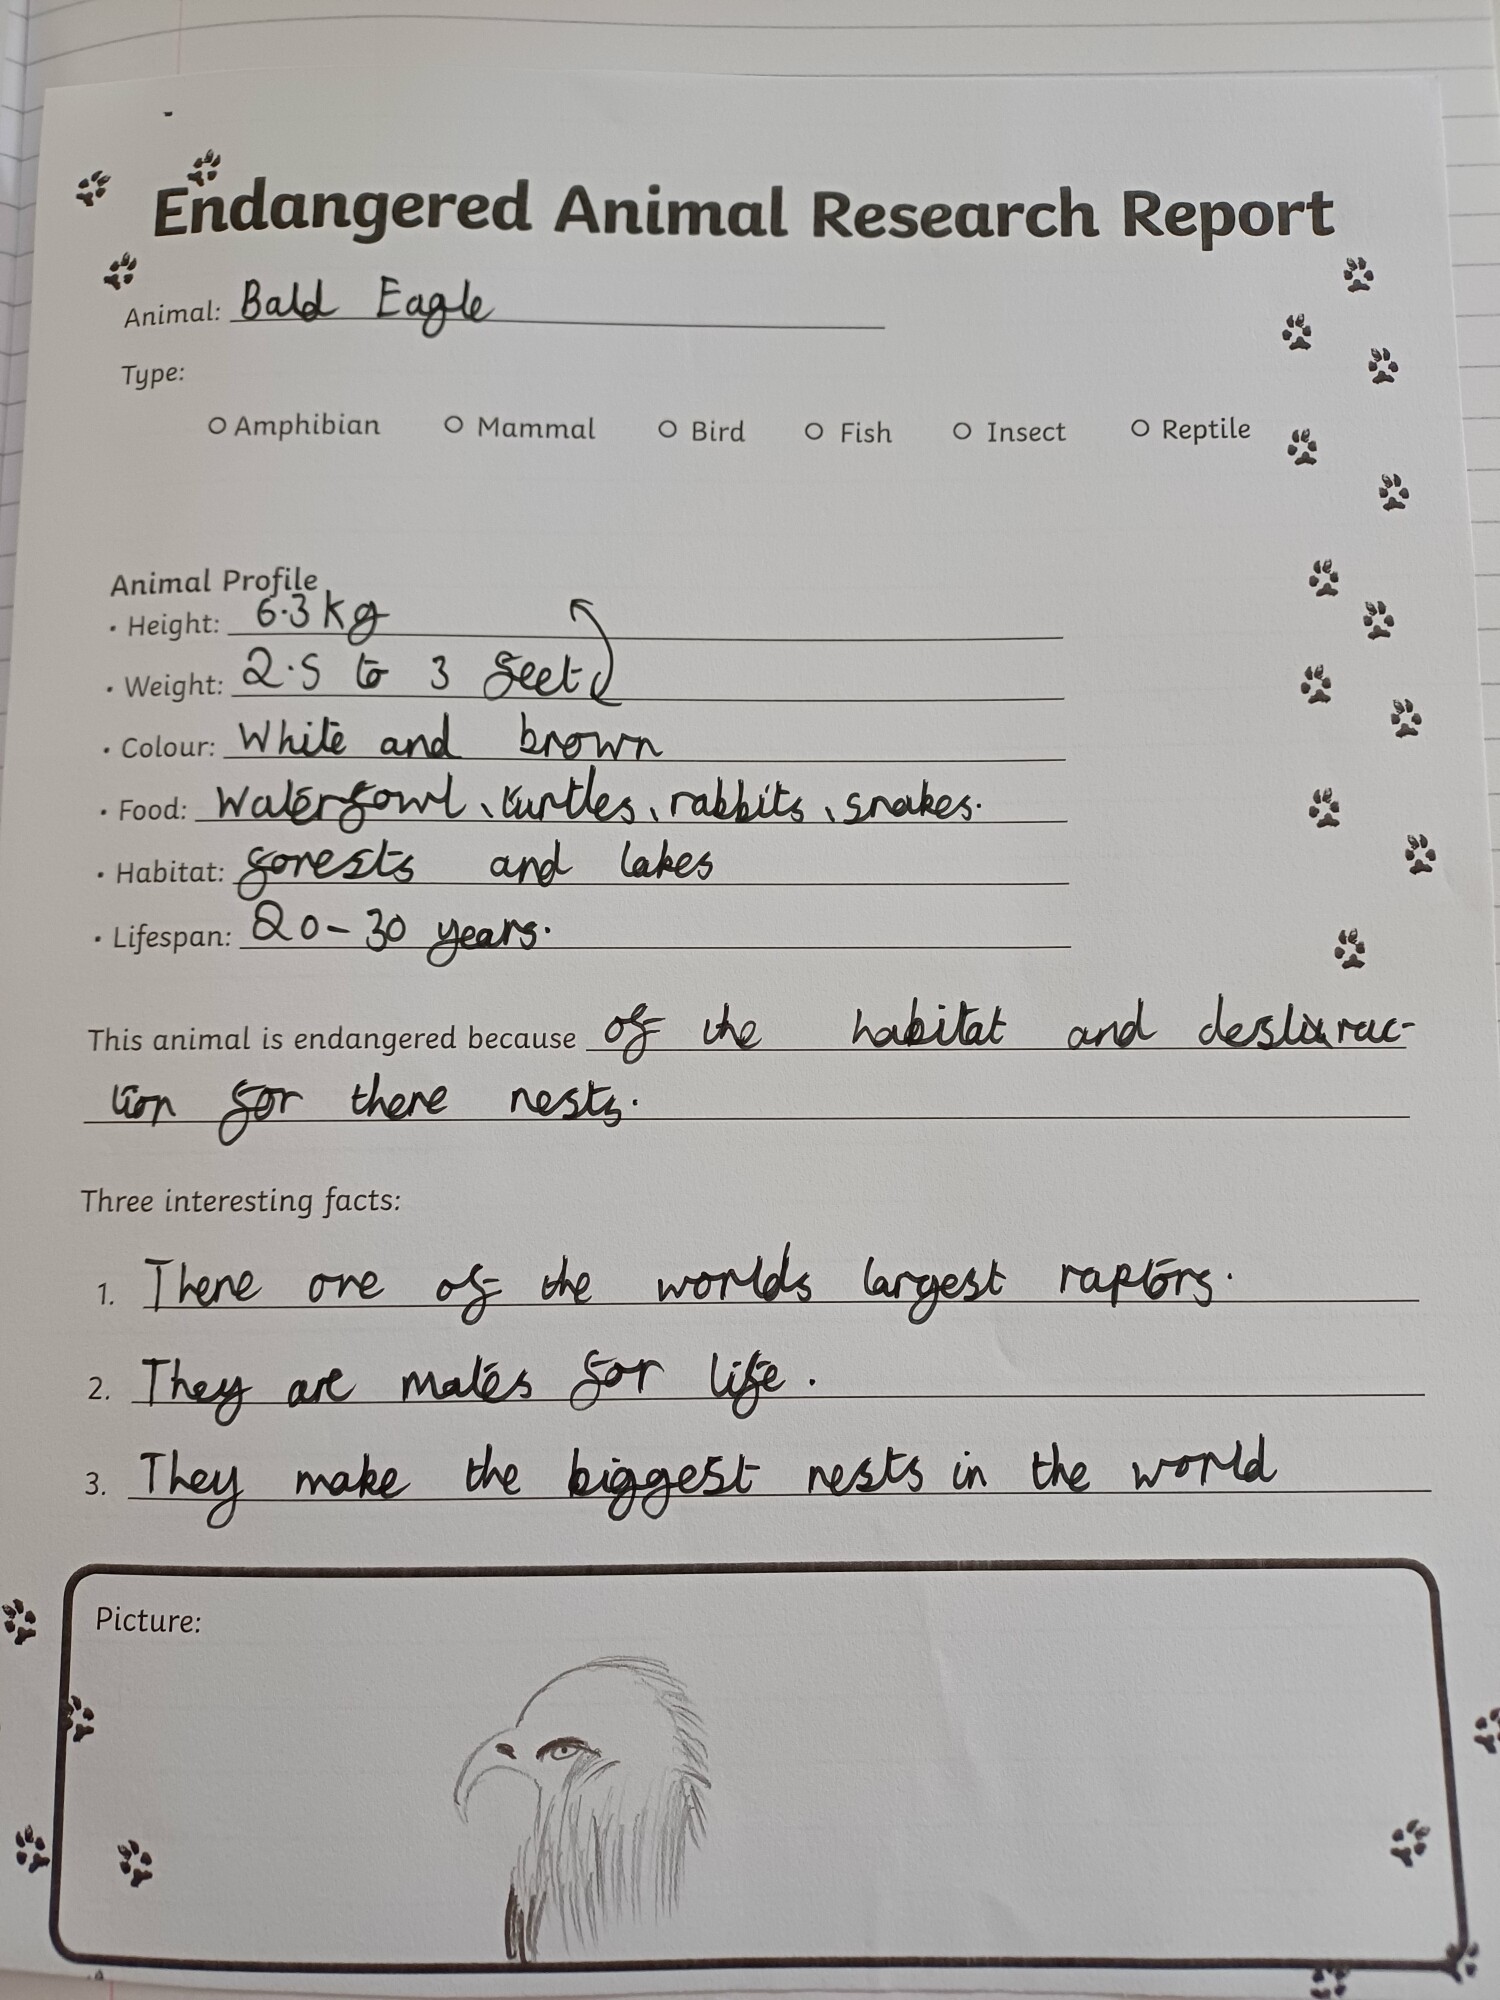 Endangered Animal Research Report
Animal: Bald Eagle
Type:
Amphibian Mammal Bird Fish Insect Reptile
Animal Profile
• Height: 6.3 kg
• Weight: 2.5 to 3 feet
• Colour: White and brown
• Food: Waterfowl, turtles, rabbits, snakes.
• Habitat: forests and lakes
• Lifespan: 20-30 years.
This animal is endangered because of the habitat and desturac-
tion for there nests.
Three interesting facts:
1. There one of the worlds largest raptors.
2. They are mates for life.
3. They make the biggest nests in the world
Picture: